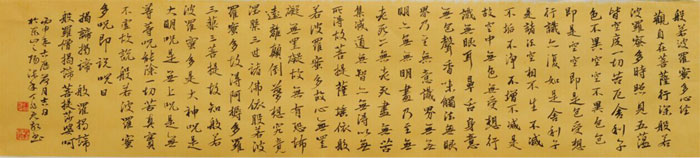 般若波羅蜜多心經
觀自在菩薩行深般若
波羅蜜多時照見五蘊
皆空度一切苦厄舍利子
色不異空空不異色色
即是空空即是色受想
行識亦復如是舍利子
是諸法空相不生不滅
不垢不淨不增不減是
故空中無色無受想行
識無眼耳鼻舌身意
無色聲香味觸法無眼
界乃至無意識界無無
明亦無無明盡乃至無
老死亦無老死盡無苦
集滅道無智亦無得以無
所得故菩提薩埵依般
若波羅蜜多故心無罣
礙無罣礙故無有恐怖
遠離顛倒夢想究竟
涅槃三世諸佛依般若波
羅蜜多故得阿耨多羅
三藐三菩提故知般若
波羅蜜多是大神咒是
大明咒是無上咒是無
等等咒能除一切苦真實
不虛故說般若波羅蜜
多咒即說咒曰
揭諦揭諦般羅揭諦
般羅僧揭諦菩提薩婆訶
丙申年